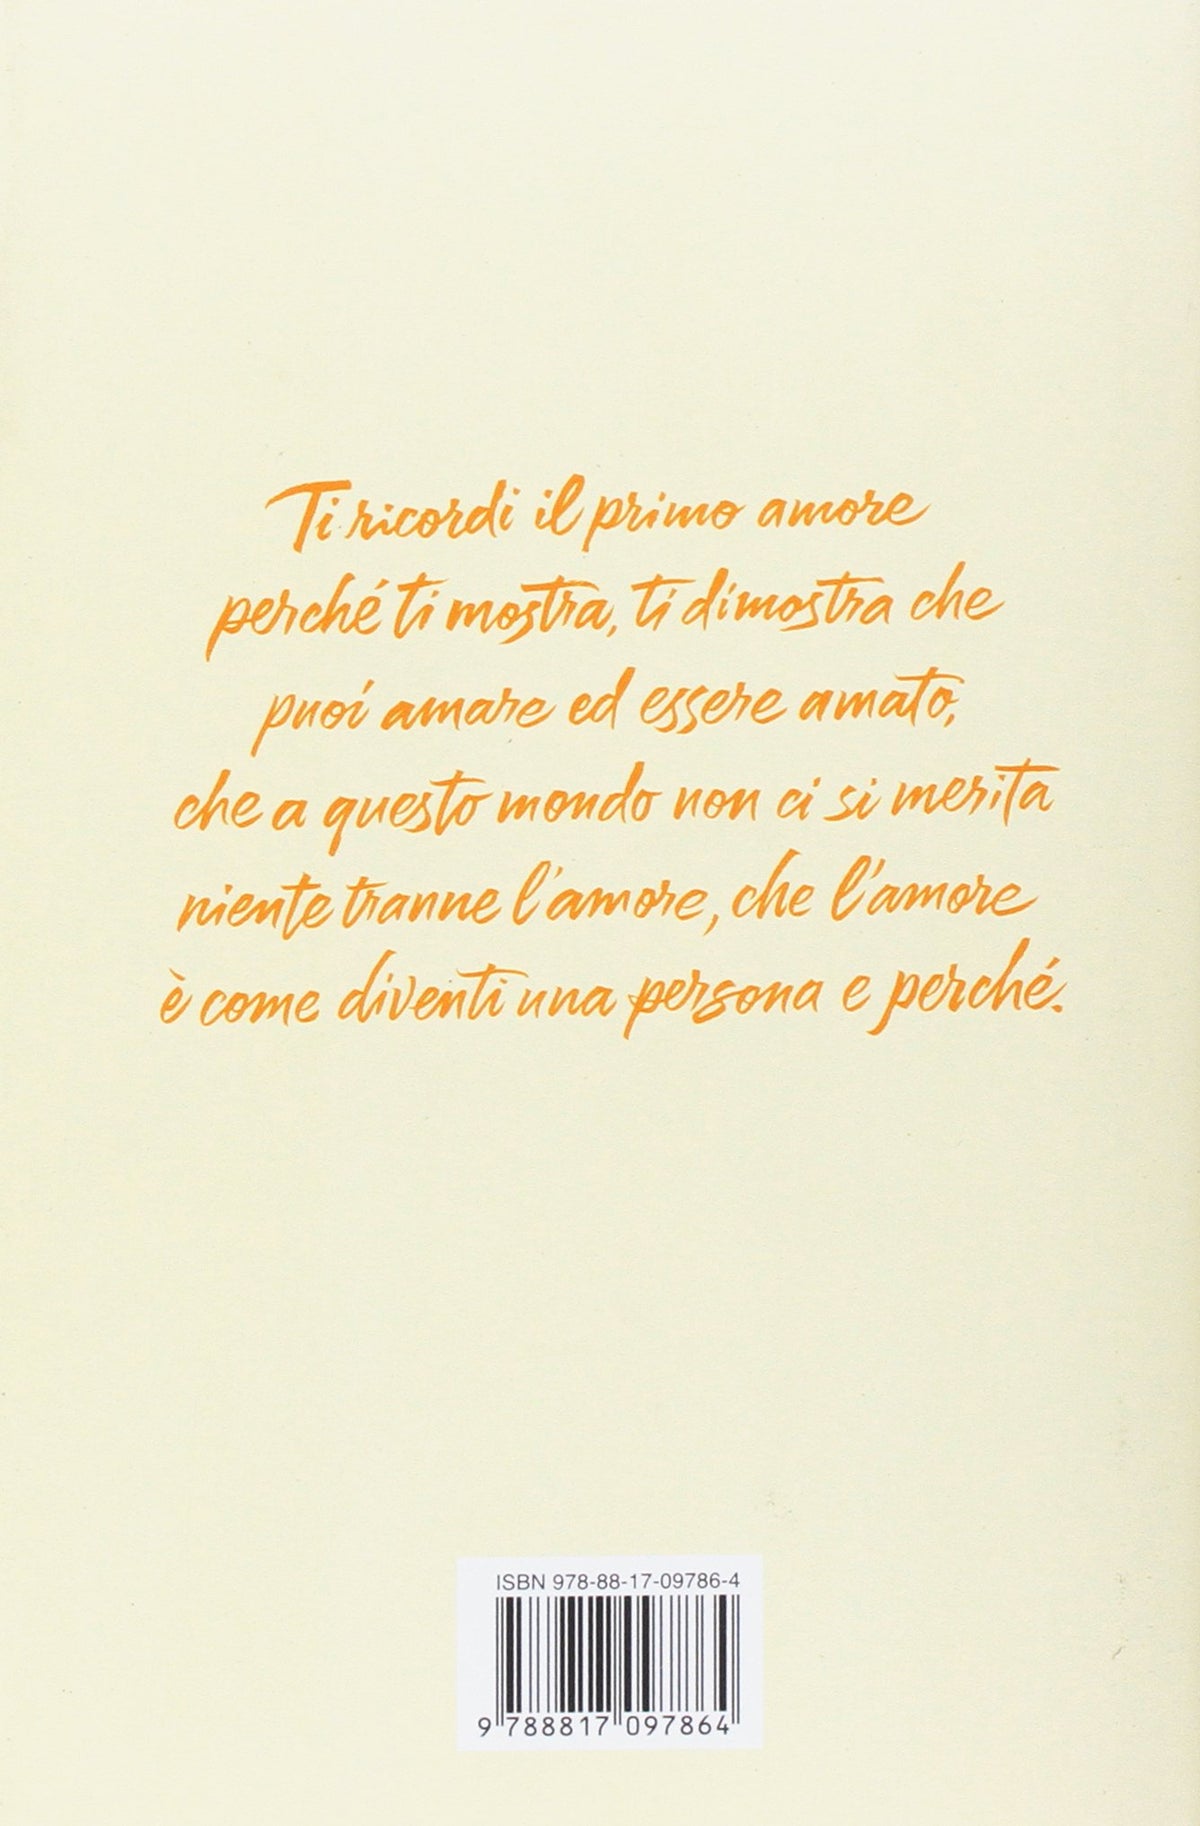 Ti ricordi il primo amore
perché ti mostra, ti dimostra che
puoi amare ed essere amato,
che a questo mondo non ci si merita
niente tranne l'amore, che l'amore
è come diventi una persona e perché.
ISBN 978-88-17-09786-4
9 788817 097864